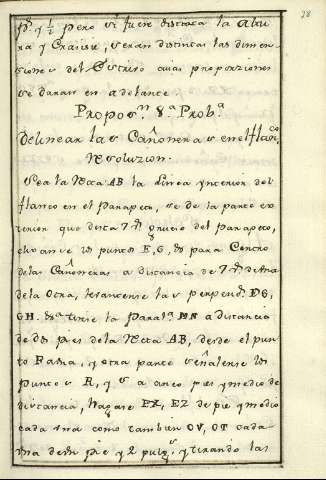 28
ps. y ½ pero si fuere distinta la Altu
ra y Craisie, seran distintas las dimen
siones del Estrivo cuias proporciones
se daran en adelante.
Propos.n 8.a Prob.a
Delinear las Cañoneras en el flanco,
resoluzion.
Sea la Recta AB la Linea ynterior del
flanco en el Parapeto, se de la parte ex
terior que dista grueso del Parapeto,
elixanse los puntos E, G, para Centro
de las Cañoneras a distancia de de una
de la otra, levantense las perpend.s EG,
GH. tirese la Paral.a a distancia
de dos pies de la Recta AB, desde el pun
to F a una, y otra parte señalense los
puntos R, y S a cinco pies y medio de
distancia, hagase EX, EZ de pie y medio
cada una como tambien OV, OT cada
una de un pie y 2 pulg.s y tirando las